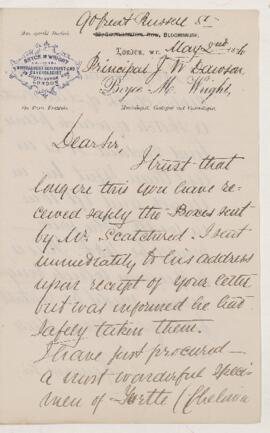 90 Great Russell St
BLOOMSBURY,
LONDON, W.C. May 2nd 1876
BRYCE M. WRIGHT
LONDON
Principal J. W. Dawson
Bryce M. Wright,
Mineralogist, Geologist and Conchologist.
Dear Sir,
I trust that
long ere this you have re-
ceived safely the Boxes sent
by Mr. Scatchard. I sent
immediately to his address
upon receipt of your letter
but was informed he had
safely taken them.
I have just procured
a most wonderful speci-
men of Turtle (Chelonia